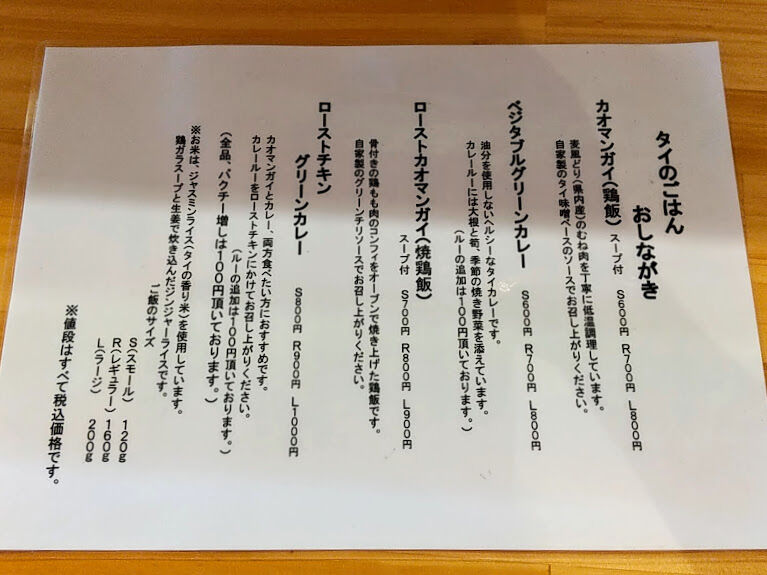 タイのごはん
おしながき
カオマンガイ(鶏飯) スープ付 S600円 R700円 L800円
麦風どり(県内産)のむね肉を丁寧に低温調理しています。
自家製のタイ味噌ベースのソースでお召し上がりください。
ベジタブルグリーンカレー S600円 R700円 L800円
油分を使用しないヘルシーなタイカレーです。
カレールーには大根と筍、季節の焼き野菜を添えています。
(ルーの追加は100円頂いております。)
ローストカオマンガイ(焼鶏飯)
スープ付 S700円 R800円 L900円
骨付きの鶏もも肉のコンフィをオーブンで焼き上げた鶏飯です。
自家製のグリーンチリソースでお召し上がりください。
ローストチキン
グリーンカレー S800円 R900円 L1000円
カオマンガイとカレー、両方食べたい方におすすめです。
カレールーをローストチキンにかけてお召し上がりください。
(ルーの追加は100円頂いております。)
(全品、パクチー増しは100円頂いております。)
※お米は、ジャスミンライス(タイの香り米)を使用しています。
鶏ガラスープと生姜で炊き込んだジンジャーライスです。
ご飯のサイズ
S(スモール) 120g
R(レギュラー) 160g
L(ラージ) 200g
※値段はすべて税込価格です。